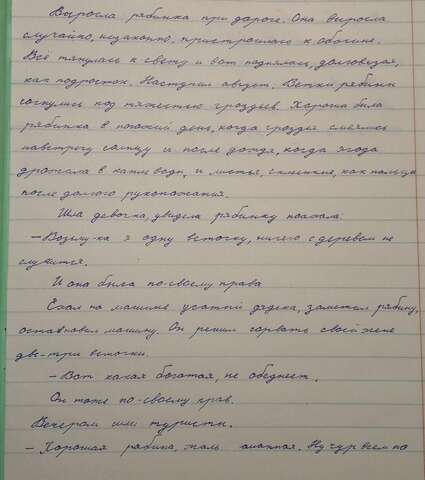 Выросла рябинка при дороге. Она выросла
случайно, незаконно, пристроилась к обочине.
Всё тянулась к свету и вот поднялась, долговязая,
как подросток. Наступил август. Ветки рябины
согнулись под тяжестью гроздьев. Хороша была
рябинка в погожий день, когда грозди смеялись
навстречу солнцу и после дождя, когда ягода
дрожала в капле воды, и листья, слипшиеся, как пальцы
после долгого рукопожатия.
Шла девочка, увидела рябинку
– Возьму-ка я одну веточку, ничего с деревом не
случится.
И она была по-своему права
Ехал на машине усатый дядека, заметил рябину,
остановил машину. Он решил сорвать своей жене
две-три веточки.
– Вот какая богатая, не обеднеет.
Он тоже по-своему прав.
Вечером шли туристы.
– Хорошая рябина, жаль Ну чур всем по